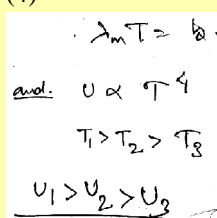 λₘT = b.
and. U ∝ T⁴
T₁ > T₂ > T₃
U₁ > U₂ > U₃